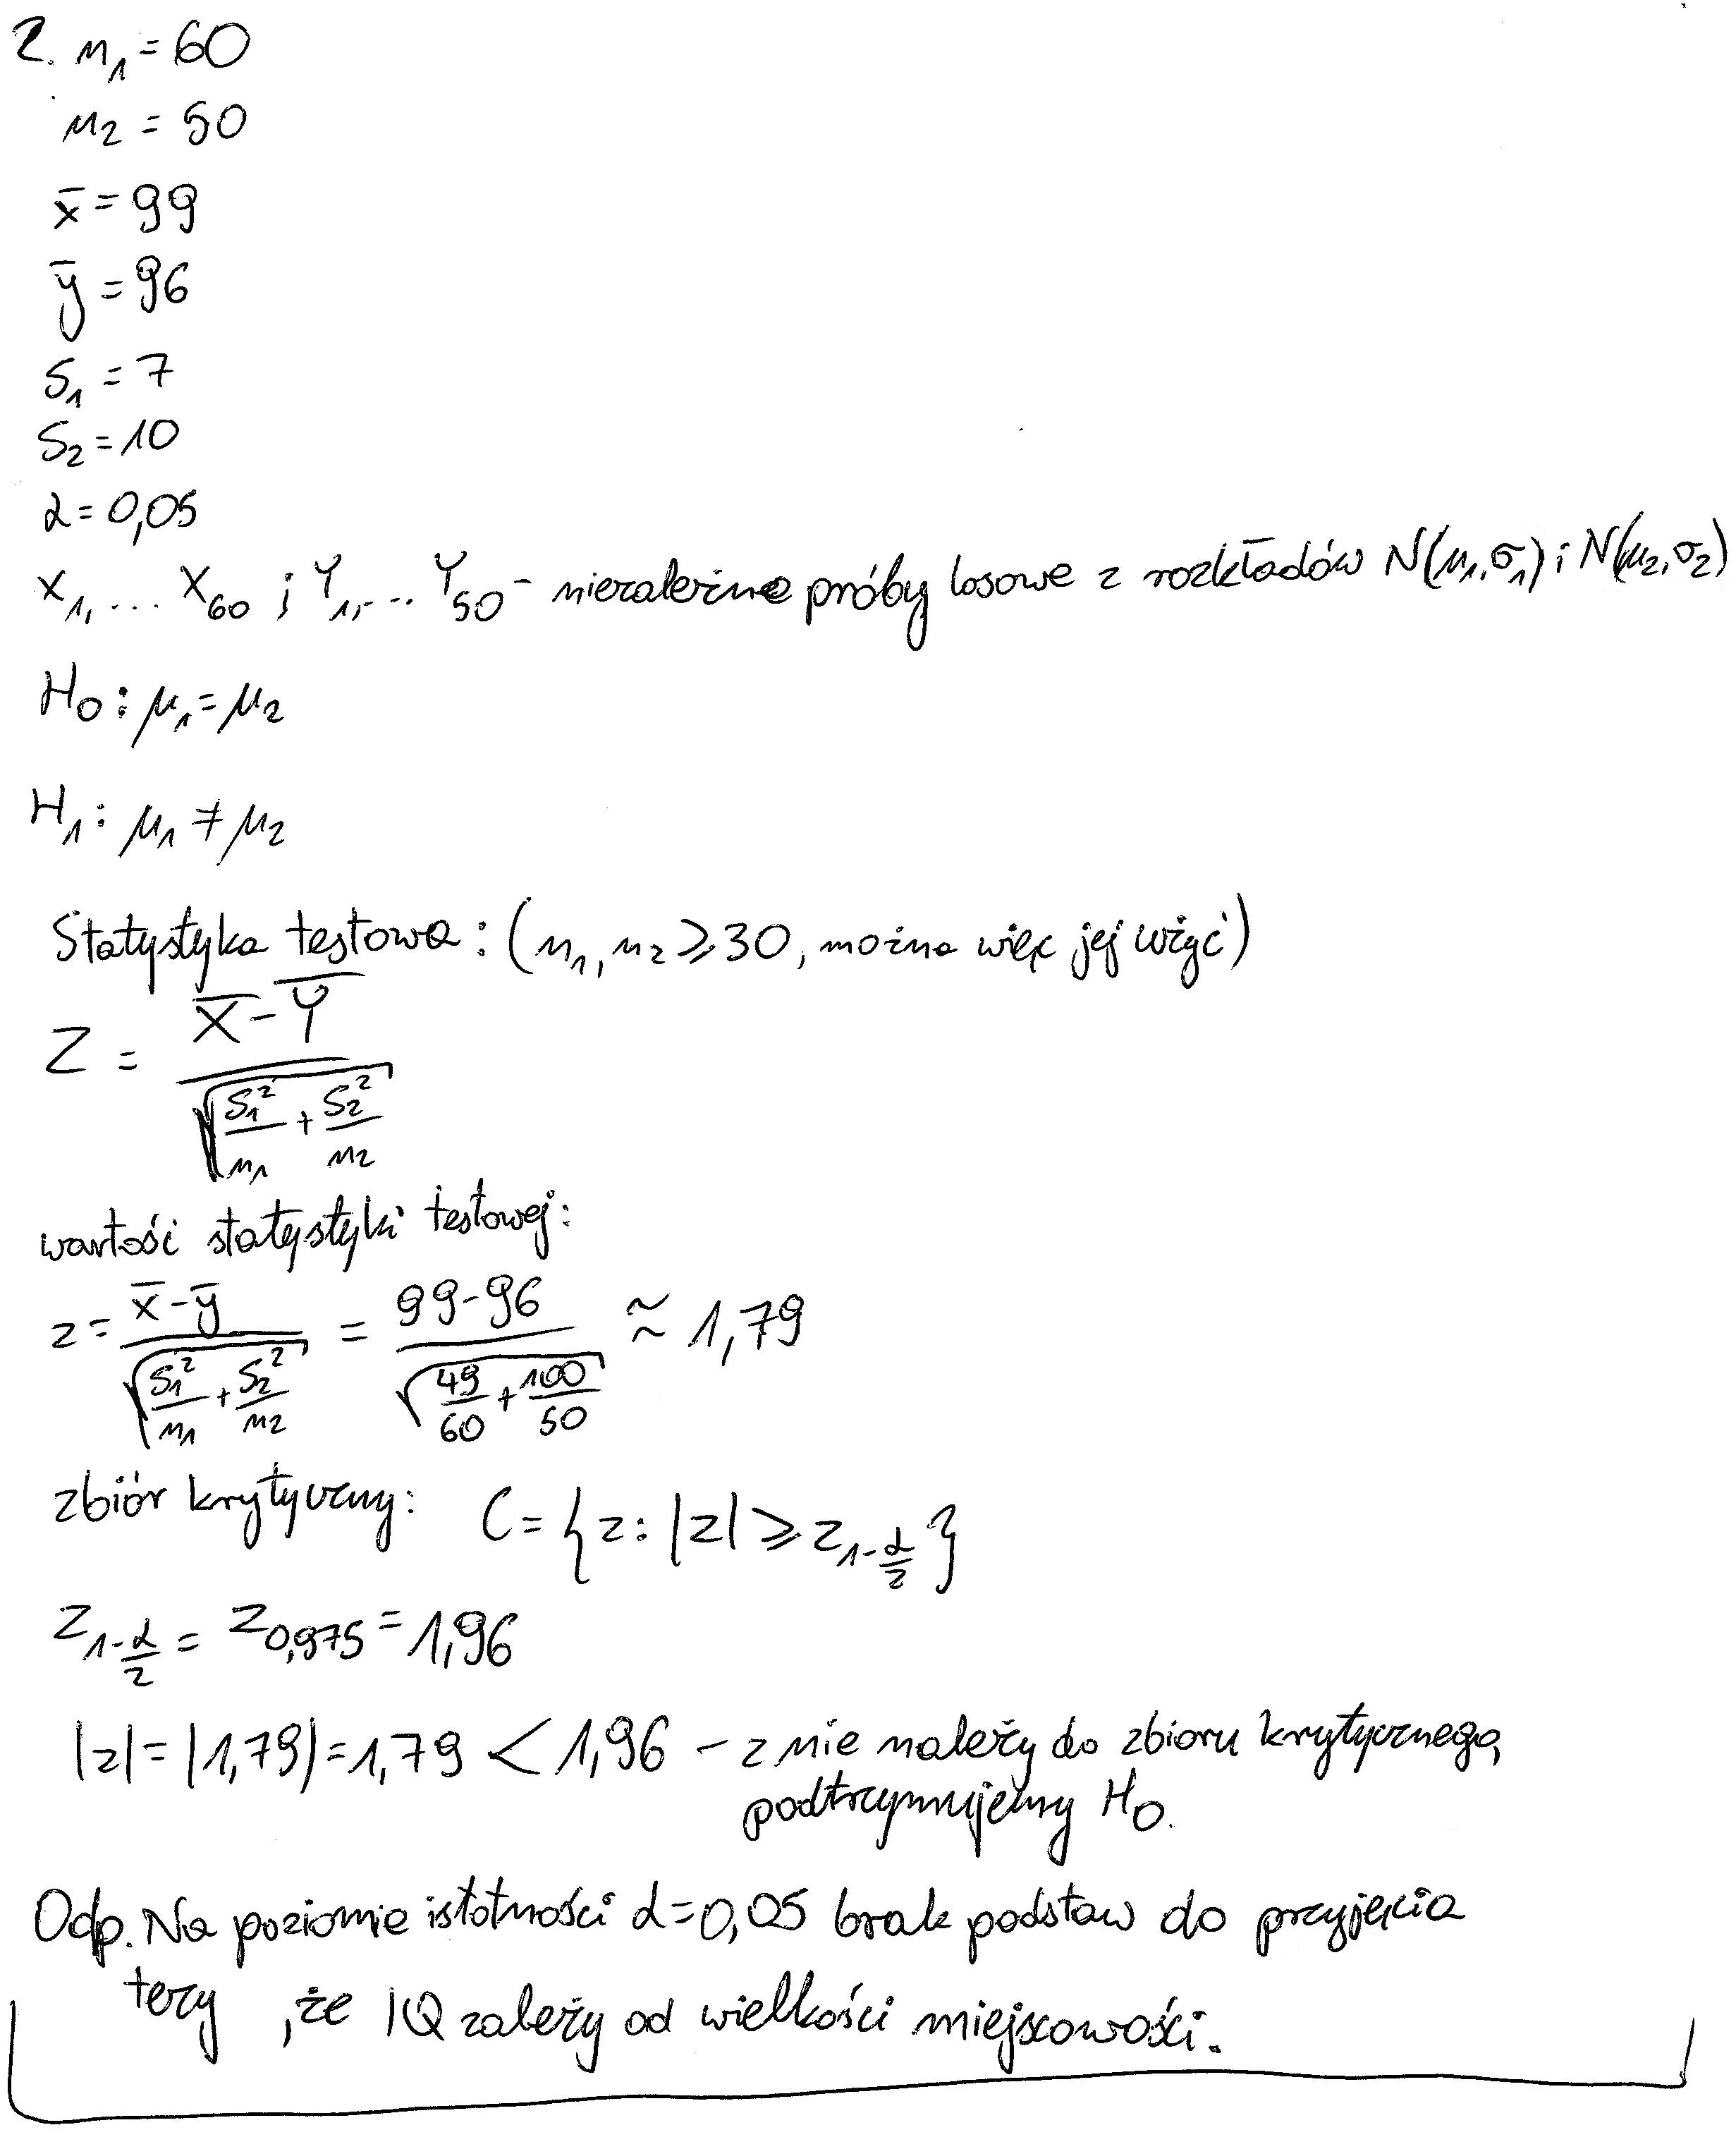 2. n₁ = 60
n₂ = 50
x̄ = 99
ȳ = 96
S₁ = 7
S₂ = 10
α = 0,05
X₁, ... X₆₀ ; Y₁, ... Y₅₀ - niezależne próby losowe z rozkładów N(μ₁, σ₁) i N(μ₂, σ₂)
H₀ : μ₁ = μ₂
H₁ : μ₁ ≠ μ₂
Statystyka testowa : (n₁, n₂ ⩾ 30, można więc jej użyć)
Z = (X̄ - Ȳ) / √(S₁²/n₁ + S₂²/n₂)
wartość statystyki testowej:
z = (x̄ - ȳ) / √(S₁²/n₁ + S₂²/n₂) = (99-96) / √(49/60 + 100/50) ≈ 1,79
zbiór krytyczny: C = {z : |z| ⩾ z_{1-α/2}}
z_{1-α/2} = z_{0,975} = 1,96
|z| = |1,79| = 1,79 < 1,96 - z nie należy do zbioru krytycznego,
podtrzymujemy H₀.
Odp. Na poziomie istotności α = 0,05 brak podstaw do przyjęcia
tezy , że IQ zależy od wielkości miejscowości.